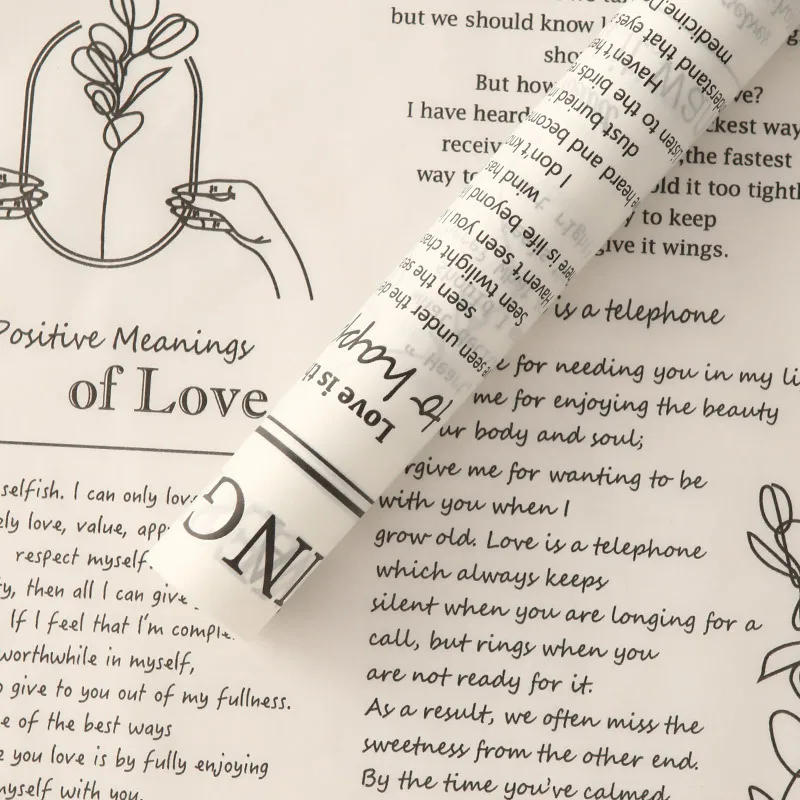 but we should know
But how
ve?
I have heard
ckest way
receiv
the fastest
way to
old it too tightl
to keep
give it wings.
is a telephone
for needing you in my li
me for enjoying the beauty
ur body and soul;
rgive me for wanting to be
with you when I
grow old. Love is a telephone
which always keeps
silent when you are longing for a
call, but rings when you
are not ready for it.
As a result, we often miss the
sweetness from the other end.
By the time you've calmed
Positive Meanings
of Love
selfish. I can only lov
ely love, value, app
respect myself.
y, then all I can give
If I feel that I'm comple
worthwhile in myself,
o give to you out of my fullness.
e of the best ways
e you love is by fully enjoying
myself with you.
medicine.
derstand that eyes
Haven't he
listen to the birds
dust buried i
e heard and become
I don't kno
wind has
here is life beyond
Haven't seen you
Seen twilight cha
seen the se
seen under the de
to happy
Love is th
ING